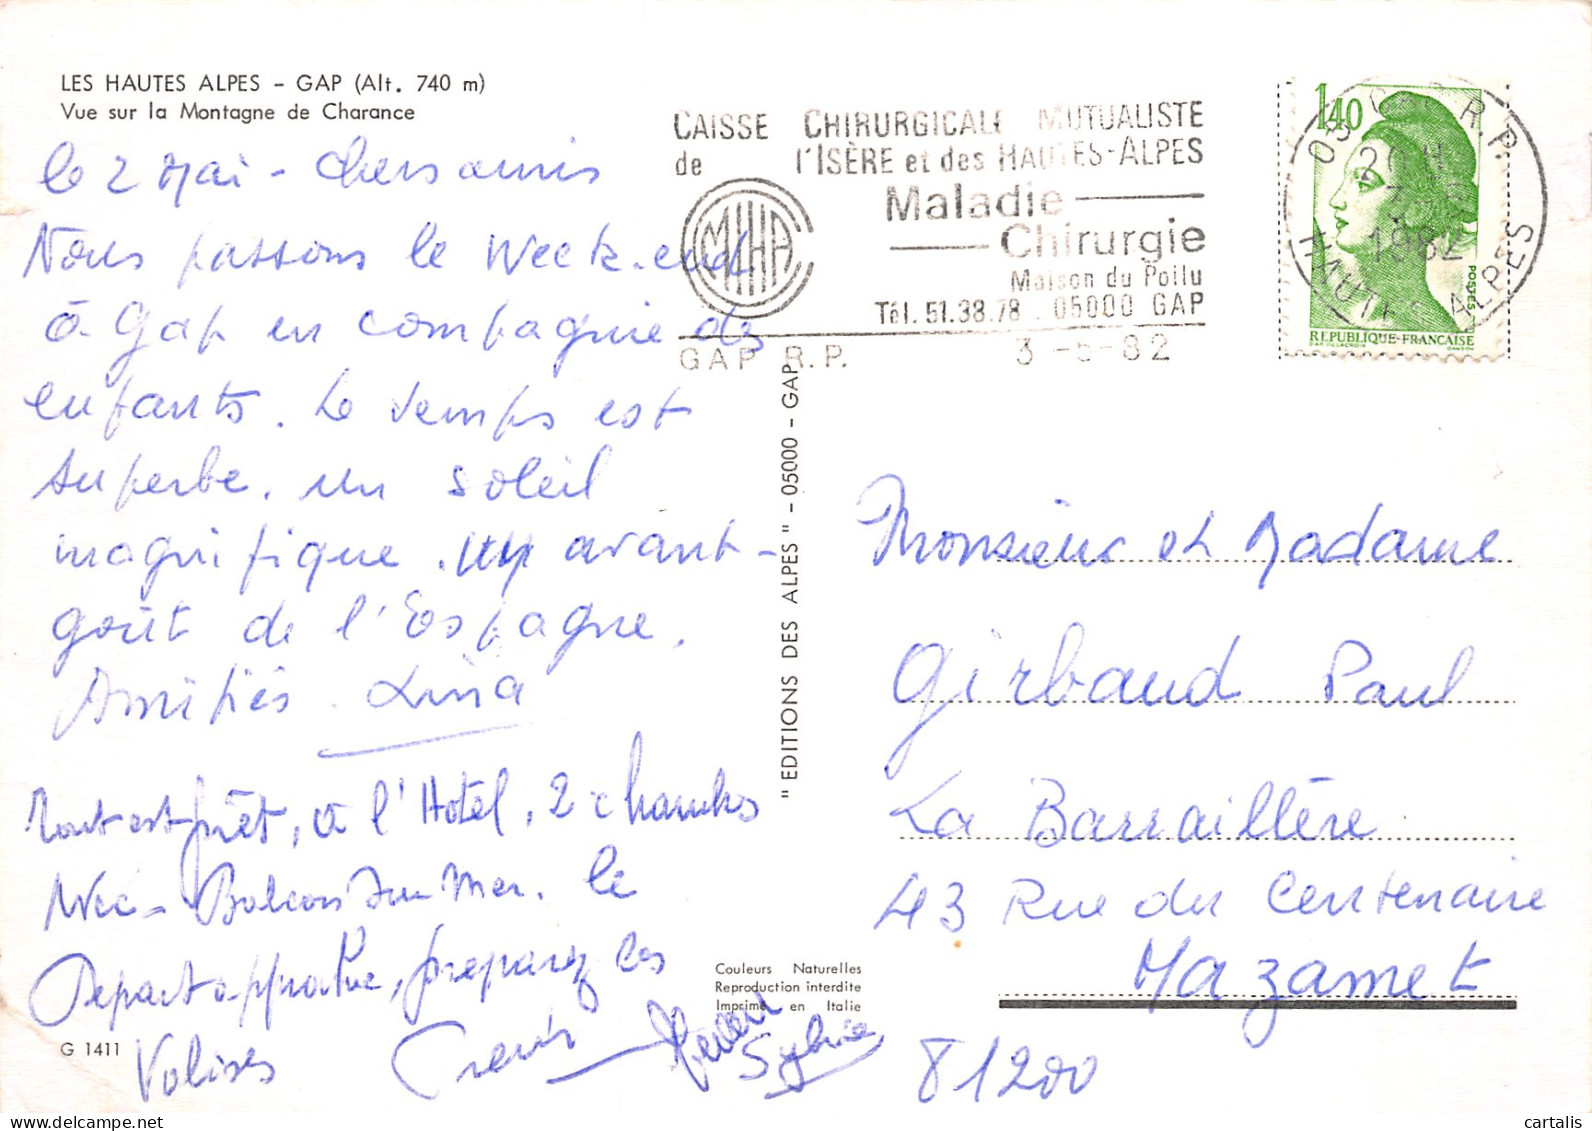 LES HAUTES ALPES - GAP (Alt. 740 m)
Vue sur la Montagne de Charance
le 2 Mai - Chers amis
Nous passons le week-end
à Gap en compagnie des
enfants. Le temps est
superbe. un soleil
magnifique. un avant-
goût de l'Espagne.
Amitiés. Lina
Tout est prêt, à l'Hotel, 2 chambres
Avec - Balcon sur Mer. le
Depart approche, preparez les
Valises
Sylvie
G 1411
CAISSE CHIRURGICALE MUTUALISTE
de l'ISÈRE et des HAUTES-ALPES
Maladie
Chirurgie
Maison du Poilu
Tél. 51.38.78 . 05000 GAP
GAP R.P. 3 -5-82
1,40
POSTES
REPUBLIQUE-FRANCAISE
05 GAP R.P.
20 H
1982
HAUTES ALPES
" EDITIONS DES ALPES " - 05000 - GAP
Monsieur et Madame
Girbaud Paul
La Barraillère
43 Rue du Centenaire
Mazamet
81200
Couleurs Naturelles
Reproduction interdite
Imprimé en Italie
cartalis